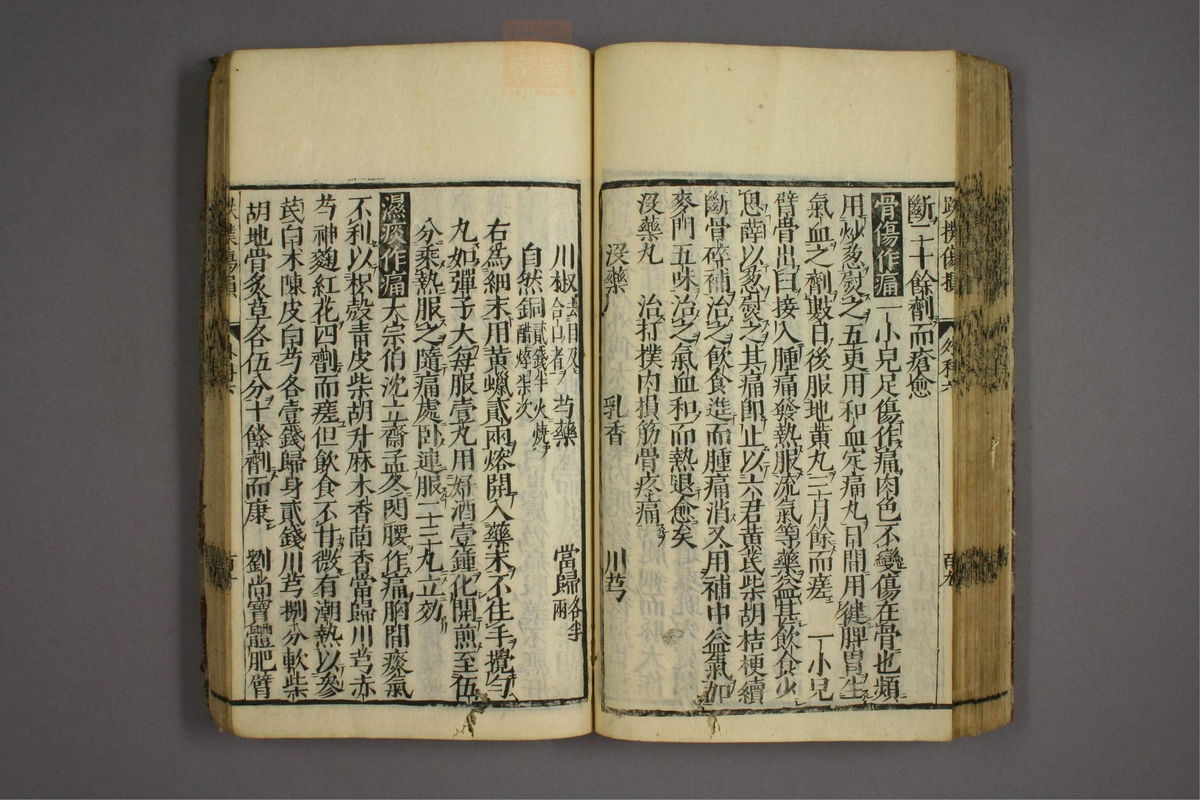 斷二十餘劑而瘡愈
骨傷作痛 一小兒足傷作痛肉色不變傷在骨也頻
用炒葱熨之五更用和血定痛丸日間用健脾胃生
氣血之劑數日後服地黃丸三月餘而瘥 一小兒
臂骨出臼接入腫痛發熱服流氣等藥益甚飲食少
思薛以葱熨之其痛即止以六君黃芪柴胡桔梗續
斷骨碎補治之飲食進而腫痛消又用補中益氣加
麥門五味治之氣血和而熱退愈矣
沒藥丸 治打撲內損筋骨疼痛
沒藥 乳香 川芎
川椒 去目及合口者 芍藥 當歸 各半兩
自然銅 貳錢半火燒醋焠柒次
右為細末用黃蠟貳兩熔開入藥末不住手攪勻
丸如彈子大每服壹丸用好酒壹鍾化開煎至伍
分乘熱服之隨痛處臥連服二三丸立効
濕痰作痛 大宗伯沈立齋孟冬閃腰作痛胸間痰氣
不利以枳殼青皮柴胡升麻木香茴香當歸川芎赤
芍神麴紅花四劑而瘥但飲食不甘微有潮熱以參
芪白朮陳皮白芍各壹錢歸身貳錢川芎捌分軟柴
胡地骨炙草各伍分十餘劑而康 劉尚寶體肥臂